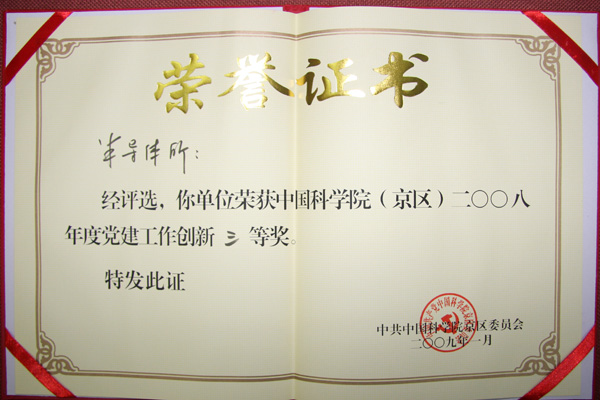 荣誉证书
半导体所：
经评选，你单位荣获中国科学院（京区）二〇〇八
年度党建工作创新 三 等奖。
特发此证
中共中国科学院京区委员会
二〇〇九年一月